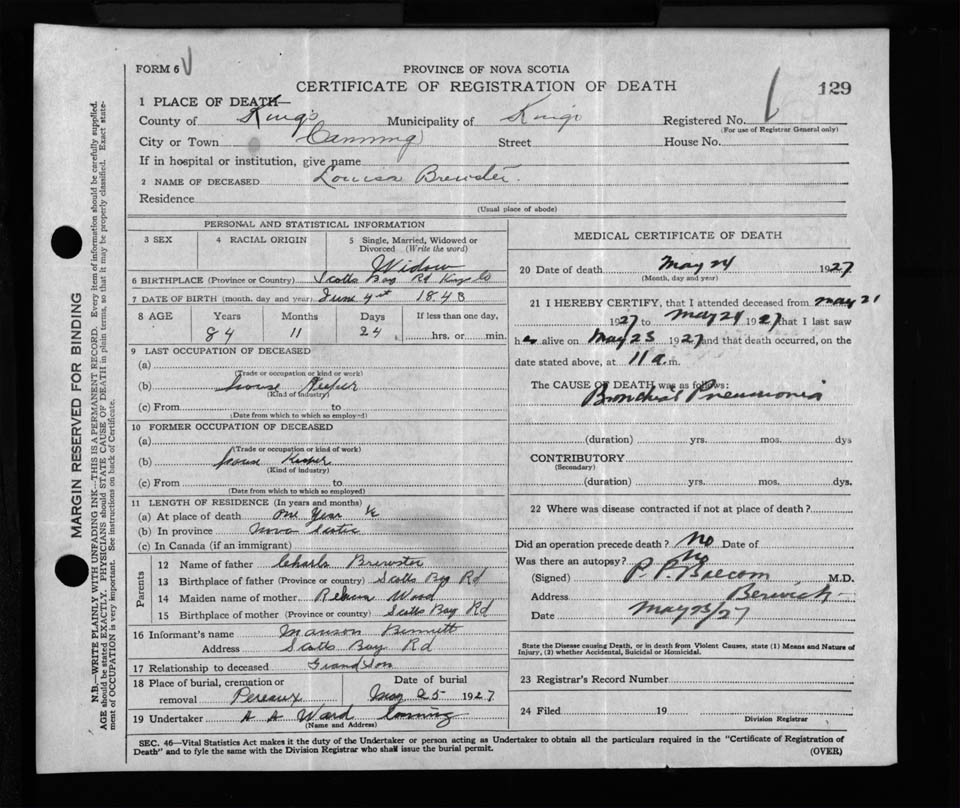 FORM 6
PROVINCE OF NOVA SCOTIA
CERTIFICATE OF REGISTRATION OF DEATH
129
1 PLACE OF DEATH—
County of Kings Municipality of Kings Registered No.
(For use of Registrar General only)
City or Town Canning Street House No.
If in hospital or institution, give name
2 NAME OF DECEASED Louisa Brewster.
Residence
(Usual place of abode)
PERSONAL AND STATISTICAL INFORMATION
3 SEX 4 RACIAL ORIGIN 5 Single, Married, Widowed or Divorced (Write the word)
Widow
6 BIRTHPLACE (Province or Country) Scotts Bay Rd Kings Co
7 DATE OF BIRTH (month, day and year) June 4 1843
8 AGE Years Months Days If less than one day,
84 11 24 hrs. or min.
9 LAST OCCUPATION OF DECEASED
(a)
(Trade or occupation or kind or work)
(b) House Keeper
(Kind of industry)
(c) From to
(Date from which to which so employed)
10 FORMER OCCUPATION OF DECEASED
(a)
(Trade or occupation or kind of work)
(b) House Keeper
(Kind of industry)
(c) From to
(Date from which to which so employed)
11 LENGTH OF RESIDENCE (In years and months)
(a) At place of death One Year
(b) In province Nova Scotia
(c) In Canada (if an immigrant)
Parents
12 Name of father Charls Brewster
13 Birthplace of father (Province or country) Scotts Bay Rd
14 Maiden name of mother Ward
15 Birthplace of mother (Province or country) Scotts Bay Rd
16 Informant's name Manson Bennett
Address Scotts Bay Rd
17 Relationship to deceased Grandson
18 Place of burial, cremation or removal Pereaux
Date of burial May 25 1927
19 Undertaker A A Ward Canning
(Name and Address)
MEDICAL CERTIFICATE OF DEATH
20 Date of death May 24 1927
(Month, day and year)
21 I HEREBY CERTIFY, that I attended deceased from May 21
1927 to May 24 1927 that I last saw
h er alive on May 23 1927 and that death occurred, on the
date stated above, at 11 a.m.
The CAUSE OF DEATH was as follows:
Bronchial Pneumonia
(duration) yrs. mos. dys
CONTRIBUTORY
(Secondary)
(duration) yrs. mos. dys.
22 Where was disease contracted if not at place of death?
Did an operation precede death? No Date of
Was there an autopsy? No
(Signed) P. P. Balcom, M.D.
Address Berwick
Date May 25/27
State the Disease causing Death, or in death from Violent Causes, state (1) Means and Nature of
Injury, (2) whether Accidental, Suicidal or Homicidal.
23 Registrar's Record Number
24 Filed 19
Division Registrar
SEC. 46—Vital Statistics Act makes it the duty of the Undertaker or person acting as Undertaker to obtain all the particulars required in the "Certificate of Registration of
Death" and to fyle the same with the Division Registrar who shall issue the burial permit.
(OVER)
MARGIN RESERVED FOR BINDING
N.B.—WRITE PLAINLY WITH UNFADING INK—THIS IS A PERMANENT RECORD. Every item of information should be carefully supplied.
AGE should be stated EXACTLY. PHYSICIANS should STATE CAUSE OF DEATH in plain terms, so that it may be properly classified. Exact state-
ment of OCCUPATION is very important. See instructions on back of Certificate.